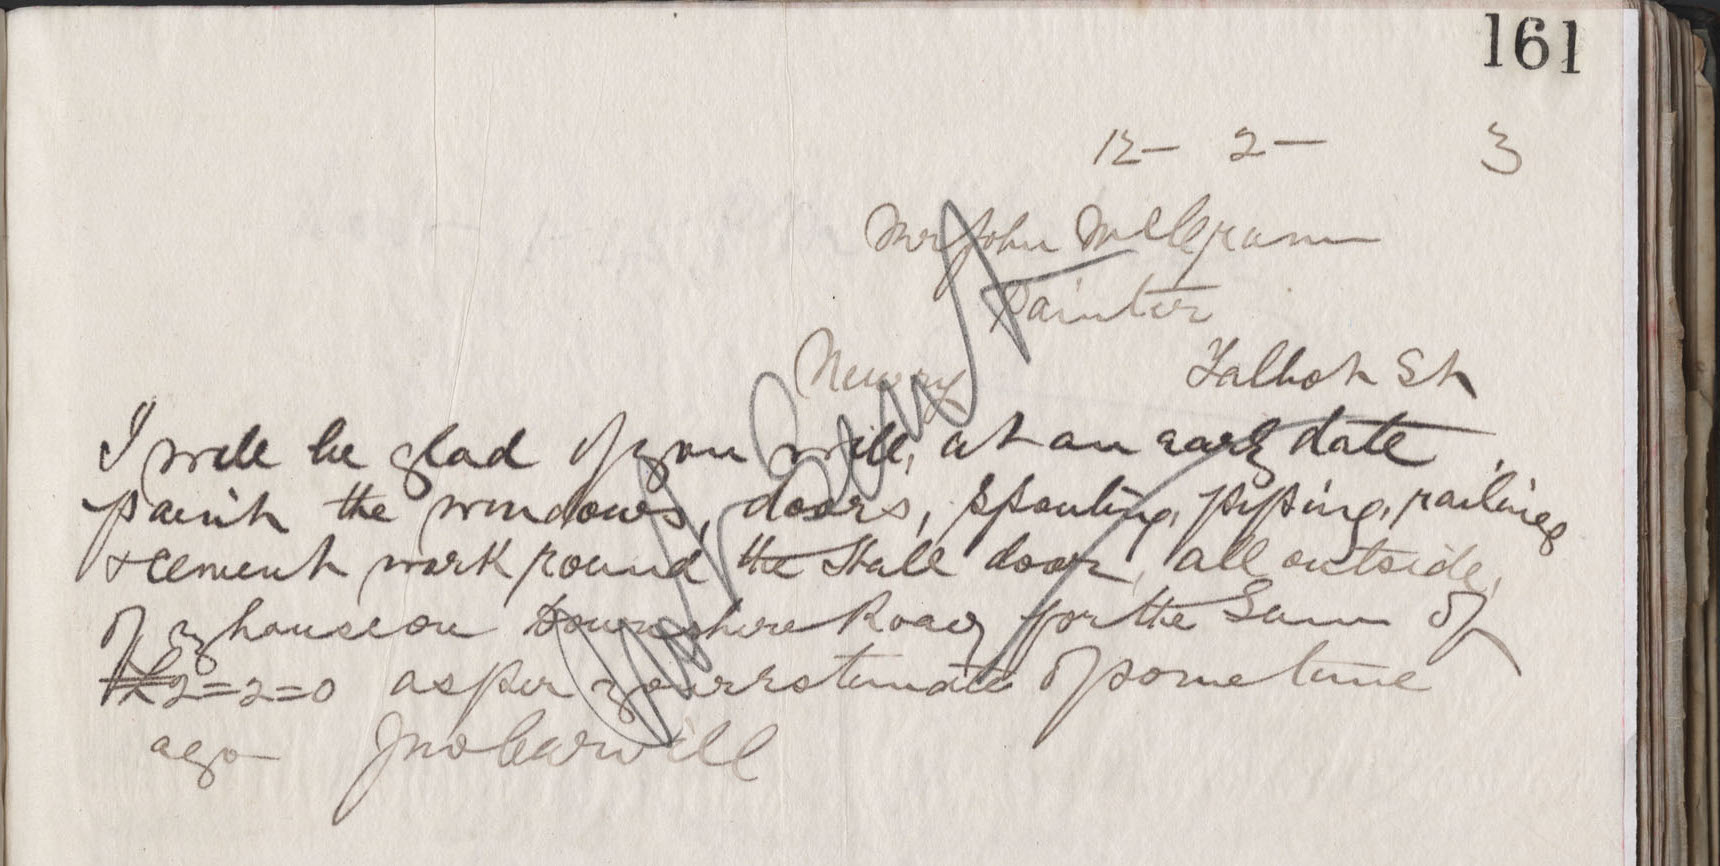 161
12 - 2 - 3
Mr John
Painter
Newry Talbot St
I will be glad if you will, at an early date,
paint the windows, doors, spouting, piping, railings
& cement work round the Hall door, all outside,
of my house on Downshire Road for the Sum of
£2=2=0 as per your estimate of some time
ago Jno Carvill